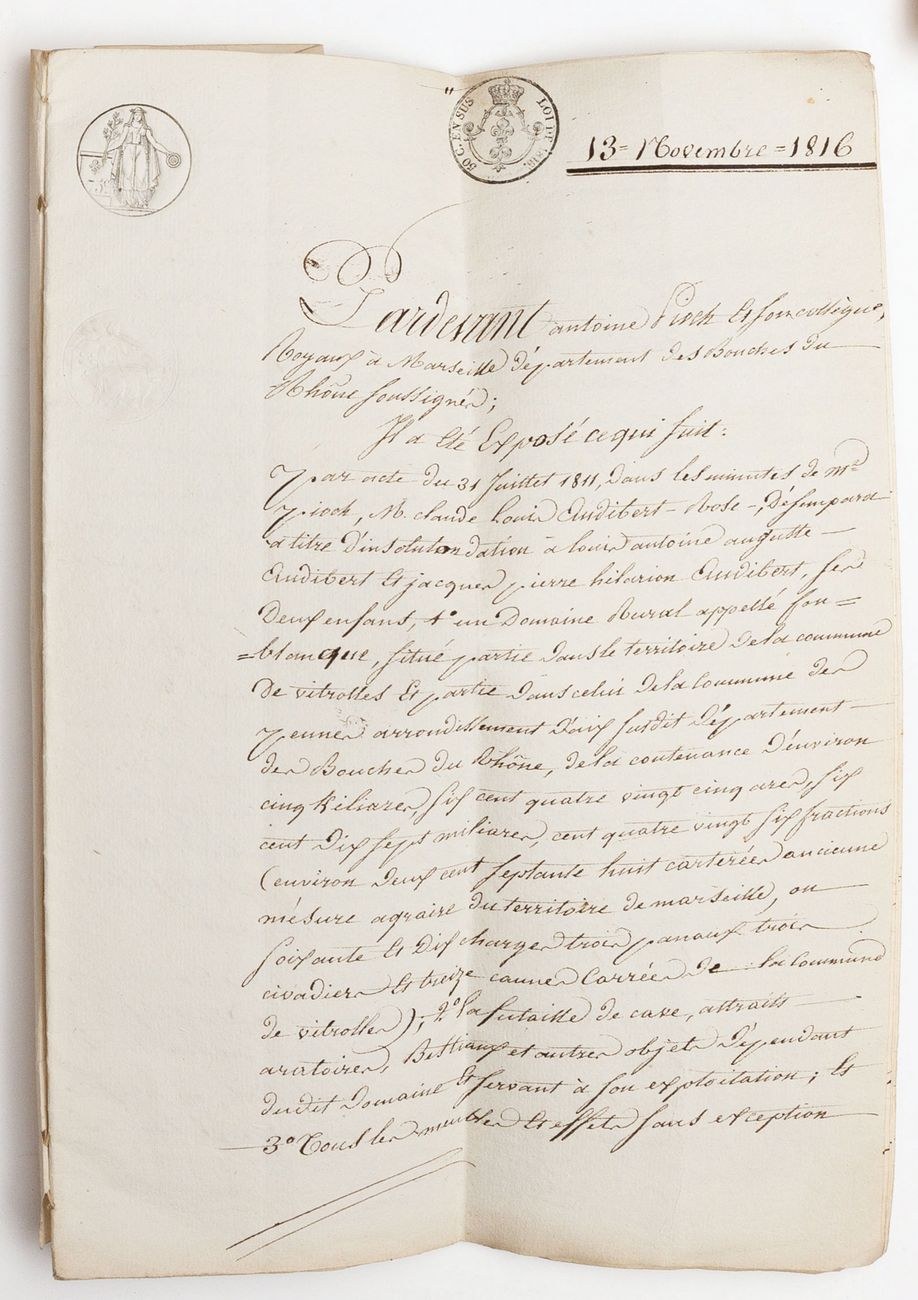 50 C. EN SUS LOI DE 1816.
13 = Novembre = 1816
Pardevant antoine Pioch Et son collègue,
Royaux à Marseille département des Bouches du
Rhône soussignés;
Il a Eté Exposé ce qui suit:
par acte du 31 Juillet 1811, dans les minutes de me
pioch, M. claude Louis Audibert - Rose -, Désempara
a titre d'insolutondation à louis antoine auguste
Audibert Et jacques pierre hilarion Audibert, ses
Deux enfant, 1° un Domaine Rural appellé fon=
=blanque, situé partie dans le territoire de la commune
De vitrolles Et partie dans celui de la Commune des
pennes arrondissement D'aix susdit Département
des Bouches du Rhône, de la contenance D'environ
cinq Kiliares, six cent quatre vingt cinq ares, six
cent Dix sept miliares, cent quatre vingt six fractions
(environ Deux cent septante huit carterées ancienne
mésure agraire du territoire de marseille, ou
soixante Et Dix charges trois panaux trois
civadiers Et treize cannes Carrées de la Commune
de vitrolles); 2° la futaille de cave, attraits
aratoires, Bestiaux et autres objets Dépendant
dudit Domaine Et servant à son exploitation; Et
3° Tous les meubles Et effets sans exception